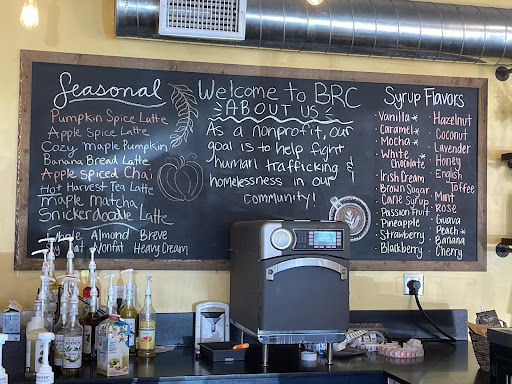 Seasonal
Pumpkin Spice Latte
Apple Spice Latte
Cozy maple Pumpkin
Banana Bread Latte
Apple Spiced Chai
Hot Harvest Tea Latte
maple Matcha
Snickerdoodle Latte
Whole Almond Breve
Oat Nonfat Heavy Cream
Welcome to BRC
ABOUT US
As a nonprofit, our
goal is to help fight
human trafficking &
homelessness in our
community!
Syrup Flavors
Vanilla *
Caramel *
Mocha *
White
Chocolate *
Irish Cream
Brown Sugar
Cane Syrup
Passion Fruit
Pineapple
Strawberry
Blackberry
Hazelnut
Coconut
Lavender
Honey
English
Toffee
Mint
Rose
Guava
Peach *
Banana
Cherry